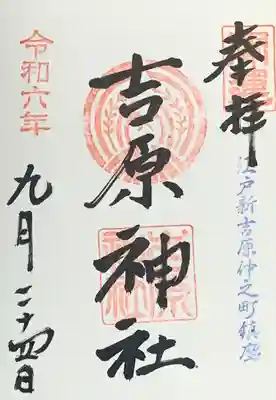 奉拝
江戸新吉原仲之町鎮座
吉原神社
令和六年
九月二十四日